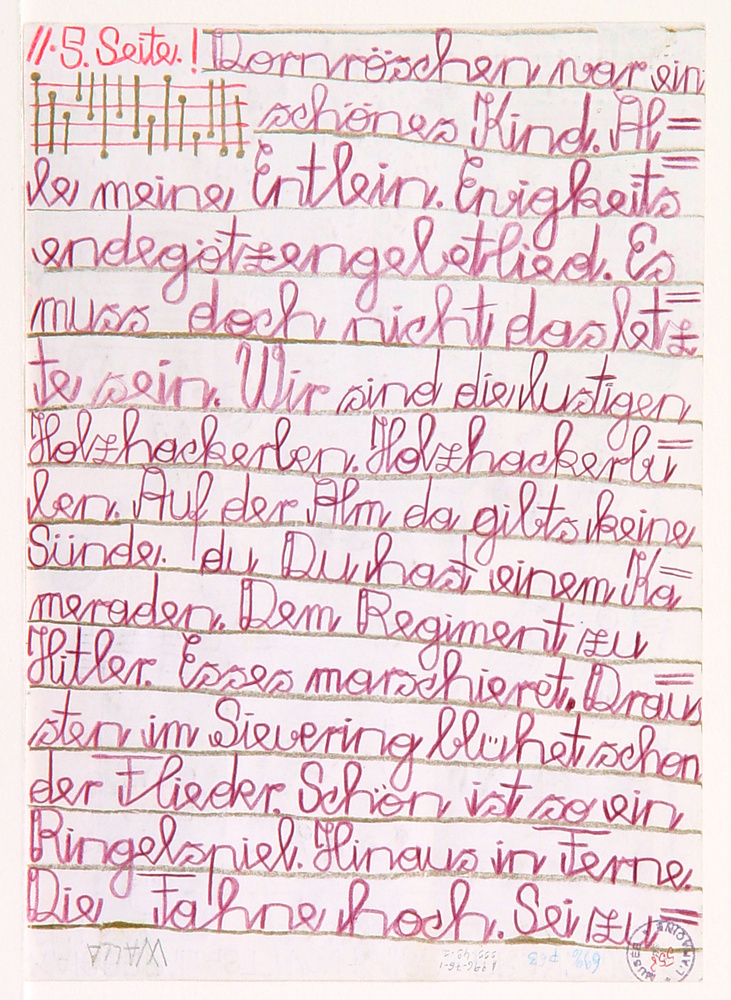 //.5. Seite.! Dornröschen war ein
schönes Kind. Al=
le meine Entlein. Ewigkeits=
endegötzengeletlied. Es
muss doch nicht das letz=
te sein. Wir sind die lustigen
Holzhackerlen. Holzhackerlu=
len. Auf der Alm da gibts keine
Sünde. du Du hast einem Ka=
meraden. Dem Regiment zu
Hitler. Esses marschieret. Draus=
sten im Sievering blühet schon
der Flieder. Schön ist so ein
Ringelspiel. Hinaus in Ferne.
Die Fahne hoch. Sei zu=
WALLA